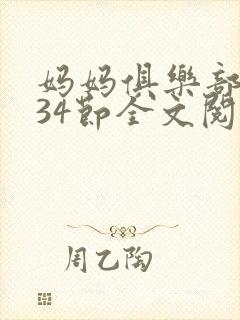 妈妈俱樂部
34節全文閱
周乙陶